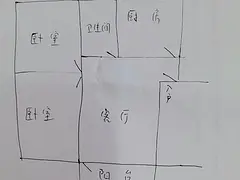 卧室
卫生间
厨房
入户
卧室
客厅
阳台